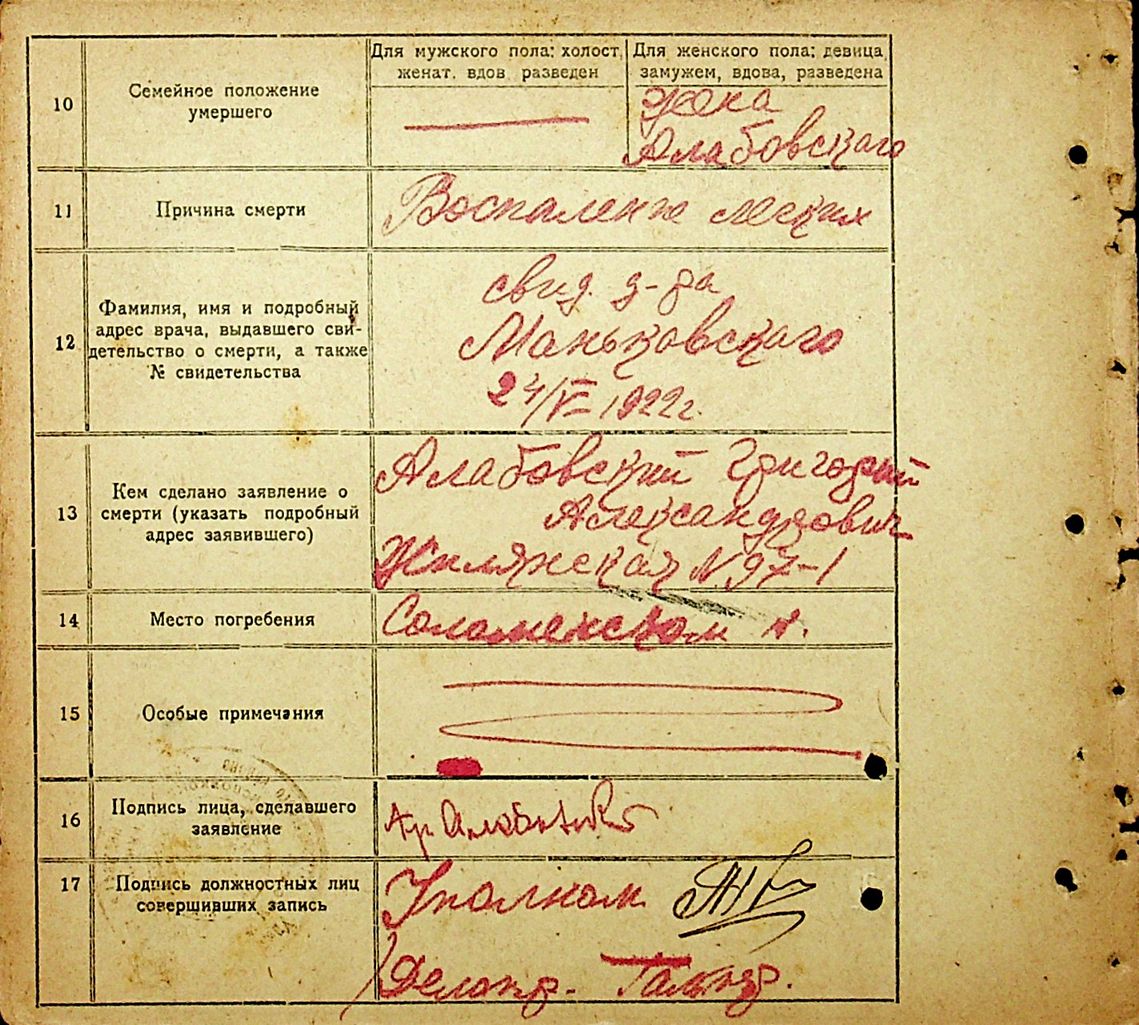 Для мужского пола: холост,
женат, вдов разведен
Для женского пола: девица
замужем, вдова, разведена
10
Семейное положение
умершего
жена
Алабовскаго
11
Причина смерти
Воспаление легких
12
Фамилия, имя и подробный
адрес врача, выдавшего сви-
детельство о смерти, а также
№ свидетельства
свид. д-ра
Маньковскаго
24/V 1922г.
13
Кем сделано заявление о
смерти (указать подробный
адрес заявившего)
Алабовский Григорий
Александрович
Жилянская N 97-1
14
Место погребения
Соломенском к.
15
Особые примечания
16
Подпись лица, сделавшего
заявление
17
Подпись должностных лиц
совершивших запись
Уполном
Делопр.